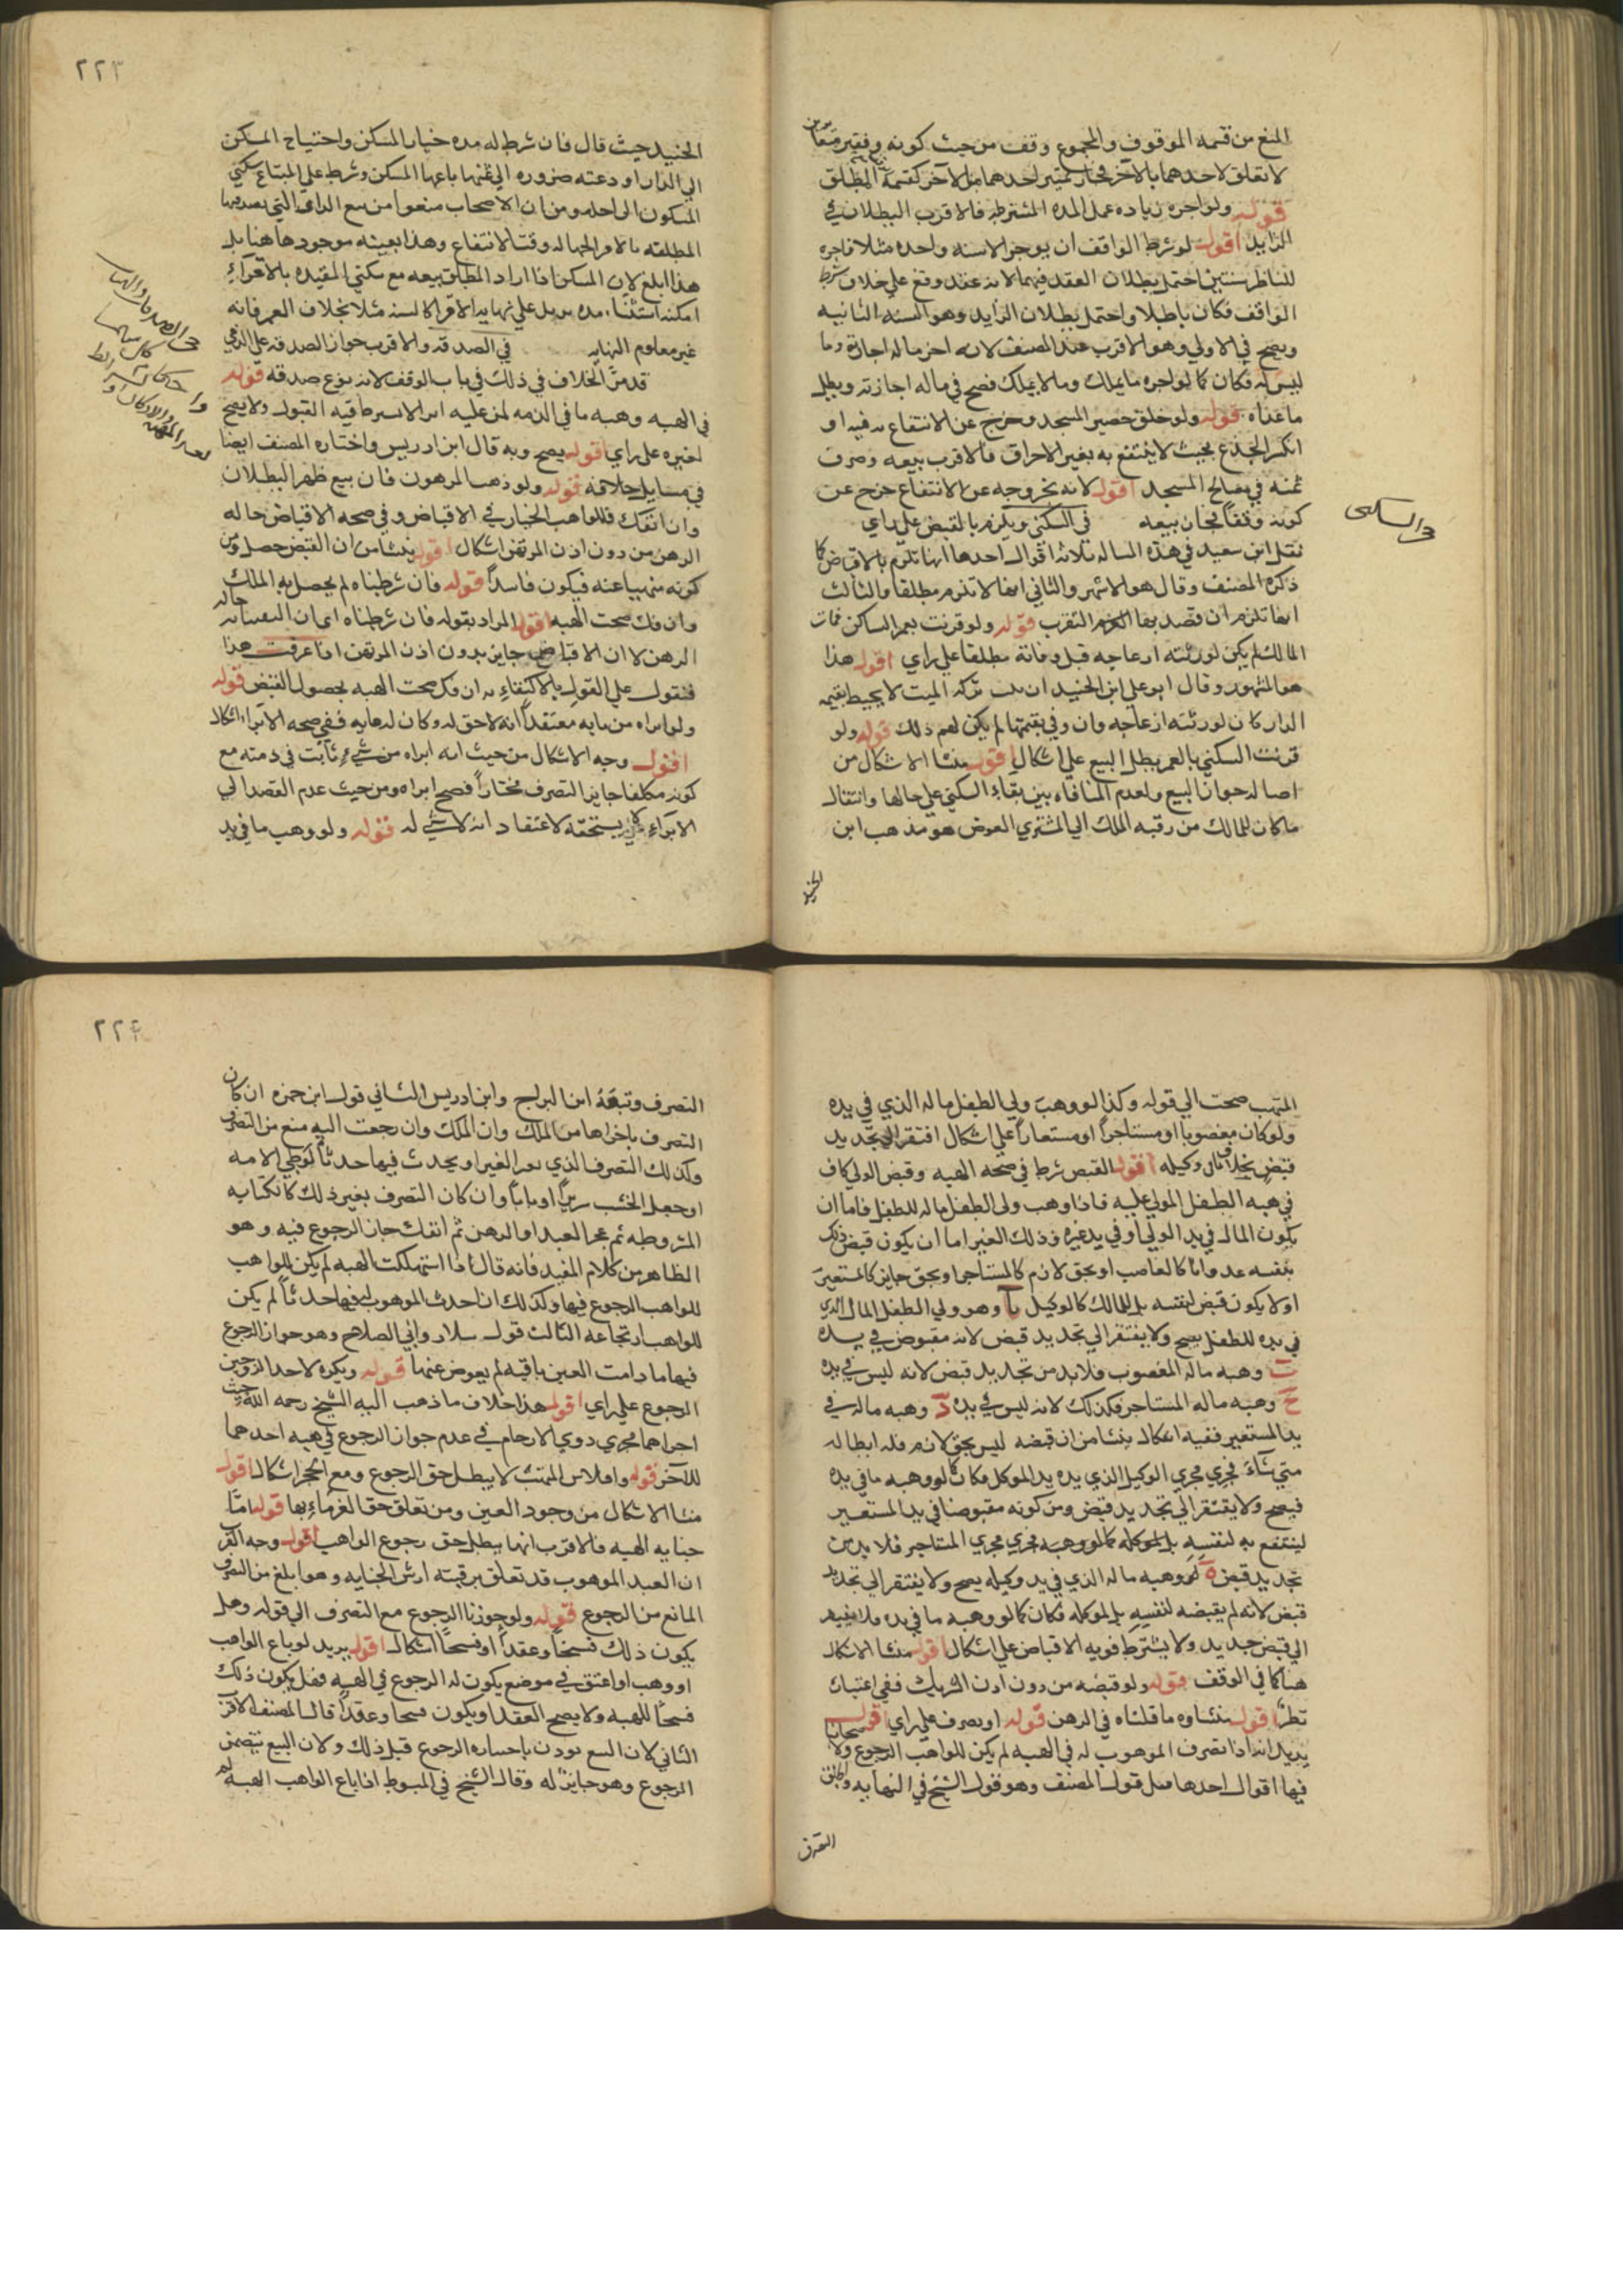 المنع من قسمه الموقوف والمجموع وقف من حيث كونه
لا تعلق لاحدهما بالآخر فجاز تمييز احدهما من الآخر كقسمة المطلق
قوله ولو اجره زياده عمل المده المشترطه فالاقرب البطلان في
الزايد اقول لو شرط الواقف ان يوجر الا سنه واحده مثلا فاجره
للناظر سنتين احتمل بطلان العقد فيهما لانه عقد وقع على خلاف شرط
الواقف فكان باطلا واحتمل بطلان الزايد وهو السنه الثانيه
ويصح في الاولي وهو الاقرب عند المصنف لانه اجر ماله اجازته وما
ليس له فكان كما لو اجره ما يملك وما لا يملك فصح في ماله اجازته وبطل
ما عداه قوله ولو خلق حصير المسجد وخرج عن الانتفاع به فيه او
انكسر الجذع بحيث لا ينتفع به بغير الاحراق فالاقرب بيعه وصرف
ثمنه في مصالح المسجد اقول لانه بخروجه عن الانتفاع خرج عن
كونه وقفا فجاز بيعه في السكني ويلزم بالقبض علي راي
نقل ابن سعيد في هذه المساله ثلاثه اقوال احدها انها تلزم بالاقباض كما
ذكره المصنف وقال هو الاشهر والثاني انها لا تلزم مطلقا والثالث
انها تلزم ان قصد بها التقرب قوله ولو قرنت بعمر الساكن فمات
المالك لم يكن لورثته ازعاجه قبل وفاته مطلقا علي راي اقول هذا
هو المشهور وقال ابو علي ابن الجنيد ان تركه الميت لا يحيط بقيمه
الدار كان لورثته ازعاجه وان وفي بقيمتها لم يكن لهم ذلك قوله ولو
قرنت السكني بالعمر بطل البيع علي اشكال اقول منشا الاشكال من
اصاله جواز البيع ولعدم المنافاه بين بقاء السكني علي حالها وانتقال
ما كان للمالك من رقبه الملك الي المشتري العوض هو مذهب ابن
الجنيد
في السكنى
٢٢٣
الجنيد حيث قال فان شرط له مده خيار المسكن واحتياج المسكن
الي الدار او دعته ضروره الي ثمنها باعها المسكن وشرط علي المبتاع سكني
المسكون الى اجله ومن ان الاصحاب منعوا من بيع الدار التي
المطلقه بالاقرا لجهاله وقت الانتفاع وهذا بعينه موجود هاهنا بل
هذا ابلغ لان المسكن اذا اراد المطلق بيعه مع سكني المقيده بالاقراء
امكنه استثناء مده يدل علي نهايه الاقرا لا لسنه مثلا بخلاف العمر فانه
غير معلوم النهايه في الصدقه والاقرب جواز الصدقه علي الذمي
قد مر الخلاف في ذلك في باب الوقف لانه نوع صدقه قوله
في الهبه وهبه ما في الذمه لمن عليه ابرا لا يشترط فيه القبول ولا يصح
لغيره علي راي اقول يصح وبه قال ابن ادريس واختاره المصنف ايضا
في مسايل خلافه قوله ولو وهب المرهون فان بيع ظهر البطلان
وان انفك فللواهب الخيار في الاقباض وفي صحه الاقباض حاله
الرهن من دون اذن المرتهن اشكال اقول ينشا من ان القبض حصل ومن
كونه منهيا عنه فيكون فاسداً قوله فان شرطناه لم يحصل به الملك
وان فك صحت الهبه اقول المراد بقوله فان شرطناه
الرهن لا ان الاقباض جايز بدون اذن المرتهن اذا عرفت هذا
فنقول علي القول بالاكتفاء به ان فك صحت الهبه بحصول القبض قوله
ولو ابراه من مايه معتقداً انه لا حق له وكان له مايه ففي صحه الابراء اشكال
اقول وجه الاشكال من حيث انه ابراه من شيء ثابت في ذمته مع
كونه مكلفا جايز التصرف مختاراً فصح ابراه ومن حيث عدم القصد الي
الابراء يستحقه لاعتقاد انه لا شي له قوله ولو وهب ما في يد
المتهب صحت الي قوله وكذا لو وهب ولي الطفل ماله الذي في يده
ولو كان مغصوبا او مستاجراً او مستعاراً علي اشكال افتقر الي تجديد
قبض بخلاف وكيله اقول القبض شرط في صحه الهبه وقبض الولي كاف
في هبه الطفل المولي عليه فاذا وهب ولي الطفل ماله للطفل فاما ان
يكون المال في يد الولي او في يد غيره وذلك الغير اما ان يكون قبض ذلك
بنفسه عدوانا كالغاصب او بحق لازم كالمستاجر او بحق جايز كالمستعير
او لا يكون قبض لنفسه بل للمالك كالوكيل آ وهو ولي الطفل المال الذي
في يده للطفل يصح ولا يفتقر الي تجديد قبض لانه مقبوض في يده
ب وهبه ماله المغصوب فلابد من تجديد قبض لانه ليس في يده
ج وهبه ماله المستاجر فكذلك لانه ليس في يده د وهبه ماله في
يد المستعير ففيه اشكال ينشا من ان قبضه ليس بحق لازم فله ابطاله
متي شاء فجري مجري الوكيل الذي يده يد الموكل فكان كما لو وهبه ما في يده
فيصح ولا يفتقر الي تجديد قبض ومن كونه مقبوضا في يد المستعير
لينتفع به لنفسه بل لموكله كما لو وهبه فجري مجري المستاجر فلا بد من
تجديد قبض ه لو وهبه ماله الذي في يد وكيله يصح ولا يفتقر الي تجديد
قبض لانه لم يقبضه لنفسه بل لموكله فكان كما لو وهبه ما في يده فلا يفتقر
الي قبض جديد ولا يشترط فوريه الاقباض علي اشكال اقول منشا الاشكال
هنا كما في الوقف قوله ولو قبضه من دون اذن الشريك ففي اعتباره
نظر اقول منشاوه ما قلناه في الرهن قوله او يصرف علي راي اقول
يريد انه اذا تصرف الموهوب له في الهبه لم يكن للواهب الرجوع
فيها اقوال احدها مثل قول المصنف وهو قول الشيخ في النهايه
التصرف
٢٢٤
التصرف وتبعه ابن البراج وابن ادريس الثاني قول ابن حمزه ان كان
التصرف باخراجها من الملك وان الملك وان رجعت اليه منع من التصرف
وكذلك التصرف الذي الغير او يحدث فيها حدثاً كوطي الامه
او جعل الخشب سريراً او باباً وان كان التصرف بغير ذلك كالكتابه
المشروطه ثم عجز العبد او الرهن ثم انفك جاز الرجوع فيه وهو
الظاهر من كلام المفيد فانه قال اذا استهلكت الهبه لم يكن للواهب
للواهب الرجوع فيها وكذلك ان احدث الموهوب له فيها حدثاً لم يكن
للواهب ارتجاعه الثالث قول سلار وابي الصلاح وهو جواز الرجوع
فيها ما دامت العين باقيه لم يعوض عنها قوله ويكره لاحد الزوجين
الرجوع علي راي اقول هذا خلاف ما ذهب اليه الشيخ رحمه الله حيث
اجراهما مجري ذوي الارحام في عدم جواز الرجوع في هبه احدهما
للآخر قوله وافلاس المتهب لا يبطل حق الرجوع ومع الحجر اشكال اقول
منشا الاشكال من وجود العين ومن تعلق حق الغرماء بها قوله اما
جنايه الهبه فالاقرب انها يبطل حق رجوع الواهب اقول وجه القرب
ان العبد الموهوب قد تعلق برقبته ارش الجنايه وهو ابلغ من التصرف
المانع من الرجوع قوله ولو جوزنا الرجوع مع التصرف الي قوله وهل
يكون ذلك فسخاً وعقداً او فسخاً اشكال اقول يريد لو باع الواهب
او وهب او اعتق في موضع يكون له الرجوع في الهبه فهل يكون ذلك
فسخاً للهبه ولا يصح العقد او يكون فسخا وعقداً قال المصنف الاقرب
الثاني لان البيع يوذن باختياره الرجوع قبل ذلك ولان البيع يتضمن
الرجوع وهو جايز له وقال الشيخ في المبسوط اذا باع الواهب الهبه